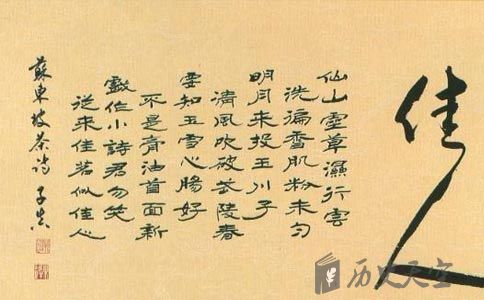 佳人
仙山靈草濕行雲
洗遍香肌粉未勻
明月来投玉川子
清風吹破武陵春
要知玉雪心腸好
不是膏油首面新
戲作小詩君勿笑
從来佳茗似佳人
蘇東坡茶诗 子
历史天空